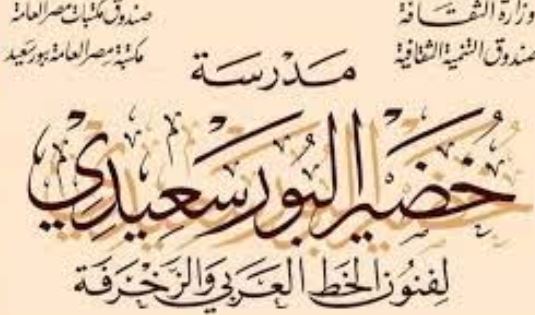 وزارة الثقافة
صندوق التنمية الثقافية
صندوق مكتبات مصر العامة
مكتبة مصر العامة ببورسعيد
مدرسة
خُضَير البُورسَعِيدِي
لِفنُون الخَط العَرَبي وَالزَخْرَفَة